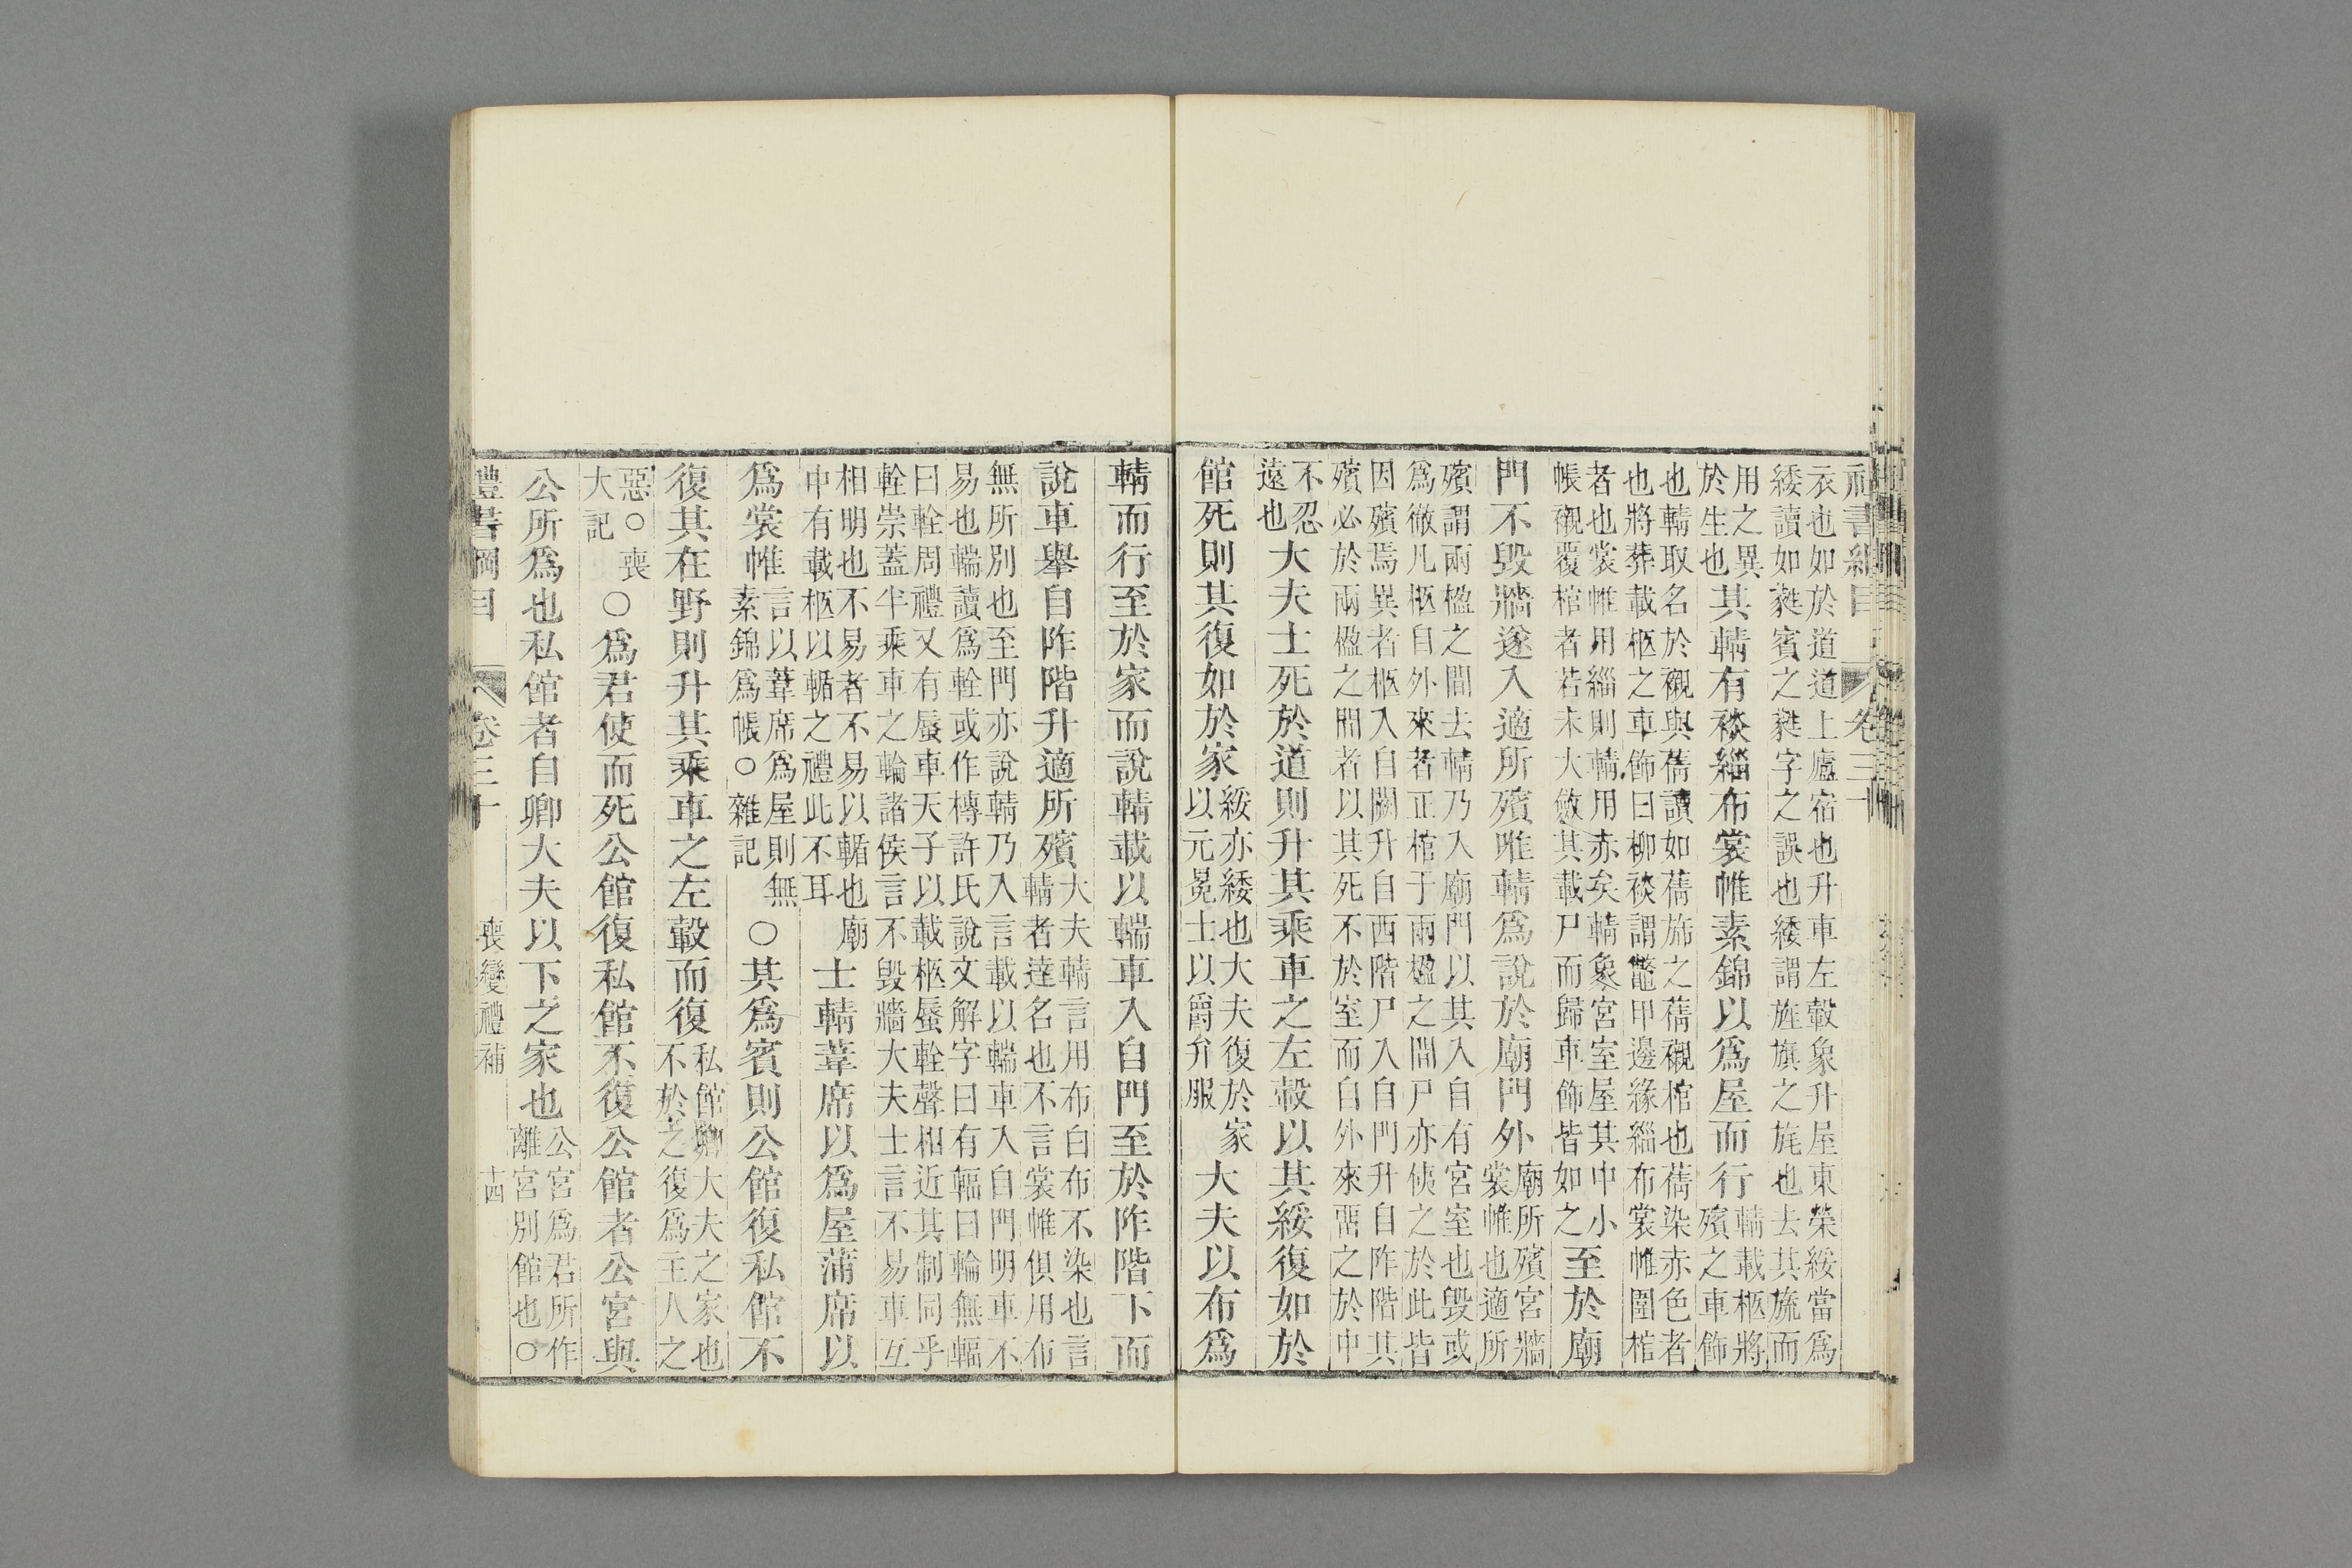 衣也如於道道上廬宿也升車左轂象升屋東榮綏當爲
緌讀如蕤賓之蕤字之誤也緌謂旌旗之旄也去其旒而
用之異
於生也其輤有裧緇布裳帷素錦以爲屋而行輤載柩將
殯之車飾
也輤取名於櫬與蒨讀如蒨旆之蒨櫬棺也蒨染赤色者
也將葬載柩之車飾曰柳裧謂鼈甲邊緣緇布裳帷圍棺
者也裳帷用緇則輤用赤矣輤象宮室屋其中小
帳襯覆棺者若未大斂其載尸而歸車飾皆如之至於廟
門不毀牆遂入適所殯唯輤爲說於廟門外廟所殯宮牆
裳帷也適所
殯謂兩楹之間去輤乃入廟門以其入自有宮室也毀或
爲徹凡柩自外來者正棺于兩楹之間尸亦侇之於此皆
因殯焉異者柩入自闕升自西階尸入自門升自阼階其
殯必於兩楹之間者以其死不於室而自外來畱之於中
不忍
遠也大夫士死於道則升其乘車之左轂以其綏復如於
館死則其復如於家綏亦緌也大夫復於家
以元冕士以爵弁服大夫以布爲
輤而行至於家而說輤載以輲車入自門至於阼階下而
說車舉自阼階升適所殯大夫輤言用布白布不染也言
輤者達名也不言裳帷俱用布
無所別也至門亦說輤乃入言載以輲車入自門明車不
易也輲讀爲輇或作槫許氏說文解字曰有輻曰輪無輻
曰輇周禮又有蜃車天子以載柩蜃輇聲相近其制同乎
輇崇蓋半乘車之輪諸侯言不毀牆大夫士言不易車互
相明也不易者不易以輴也廟
中有載柩以輴之禮此不耳士輤葦席以爲屋蒲席以
爲裳帷言以葦席爲屋則無
素錦爲帳○雜記○其爲賓則公館復私館不
復其在野則升其乘車之左轂而復私館卿大夫之家也
不於之復爲主人之
惡○喪
大記○爲君使而死公館復私館不復公館者公宮與
公所爲也私館者自卿大夫以下之家也公宮爲君所作
離宮別館也○
禮書綱目 卷三十 喪變禮補 十四